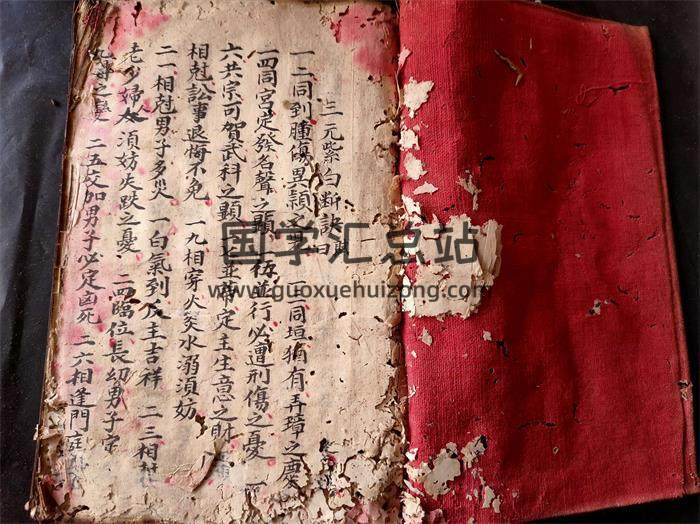 三元紫白断訣
一二同到腫傷異顯 三同垣猶有弄璋之慶
一四同宮定發名聲之顯 一伍並行必遭刑傷之憂 一
六共宗可賀武科之顯 一七並 定主生意之財
相尅訟事退悔不免 一九相穿火災水溺須妨
二一相尅男子多災 一白氣到反主吉祥 二三相
老少婦人須妨失跌之憂 二四臨位長幼男子
之變 二五交加男子必定凶死 二六相逢門庭
国学汇总站
www.guoxuehuizong.com